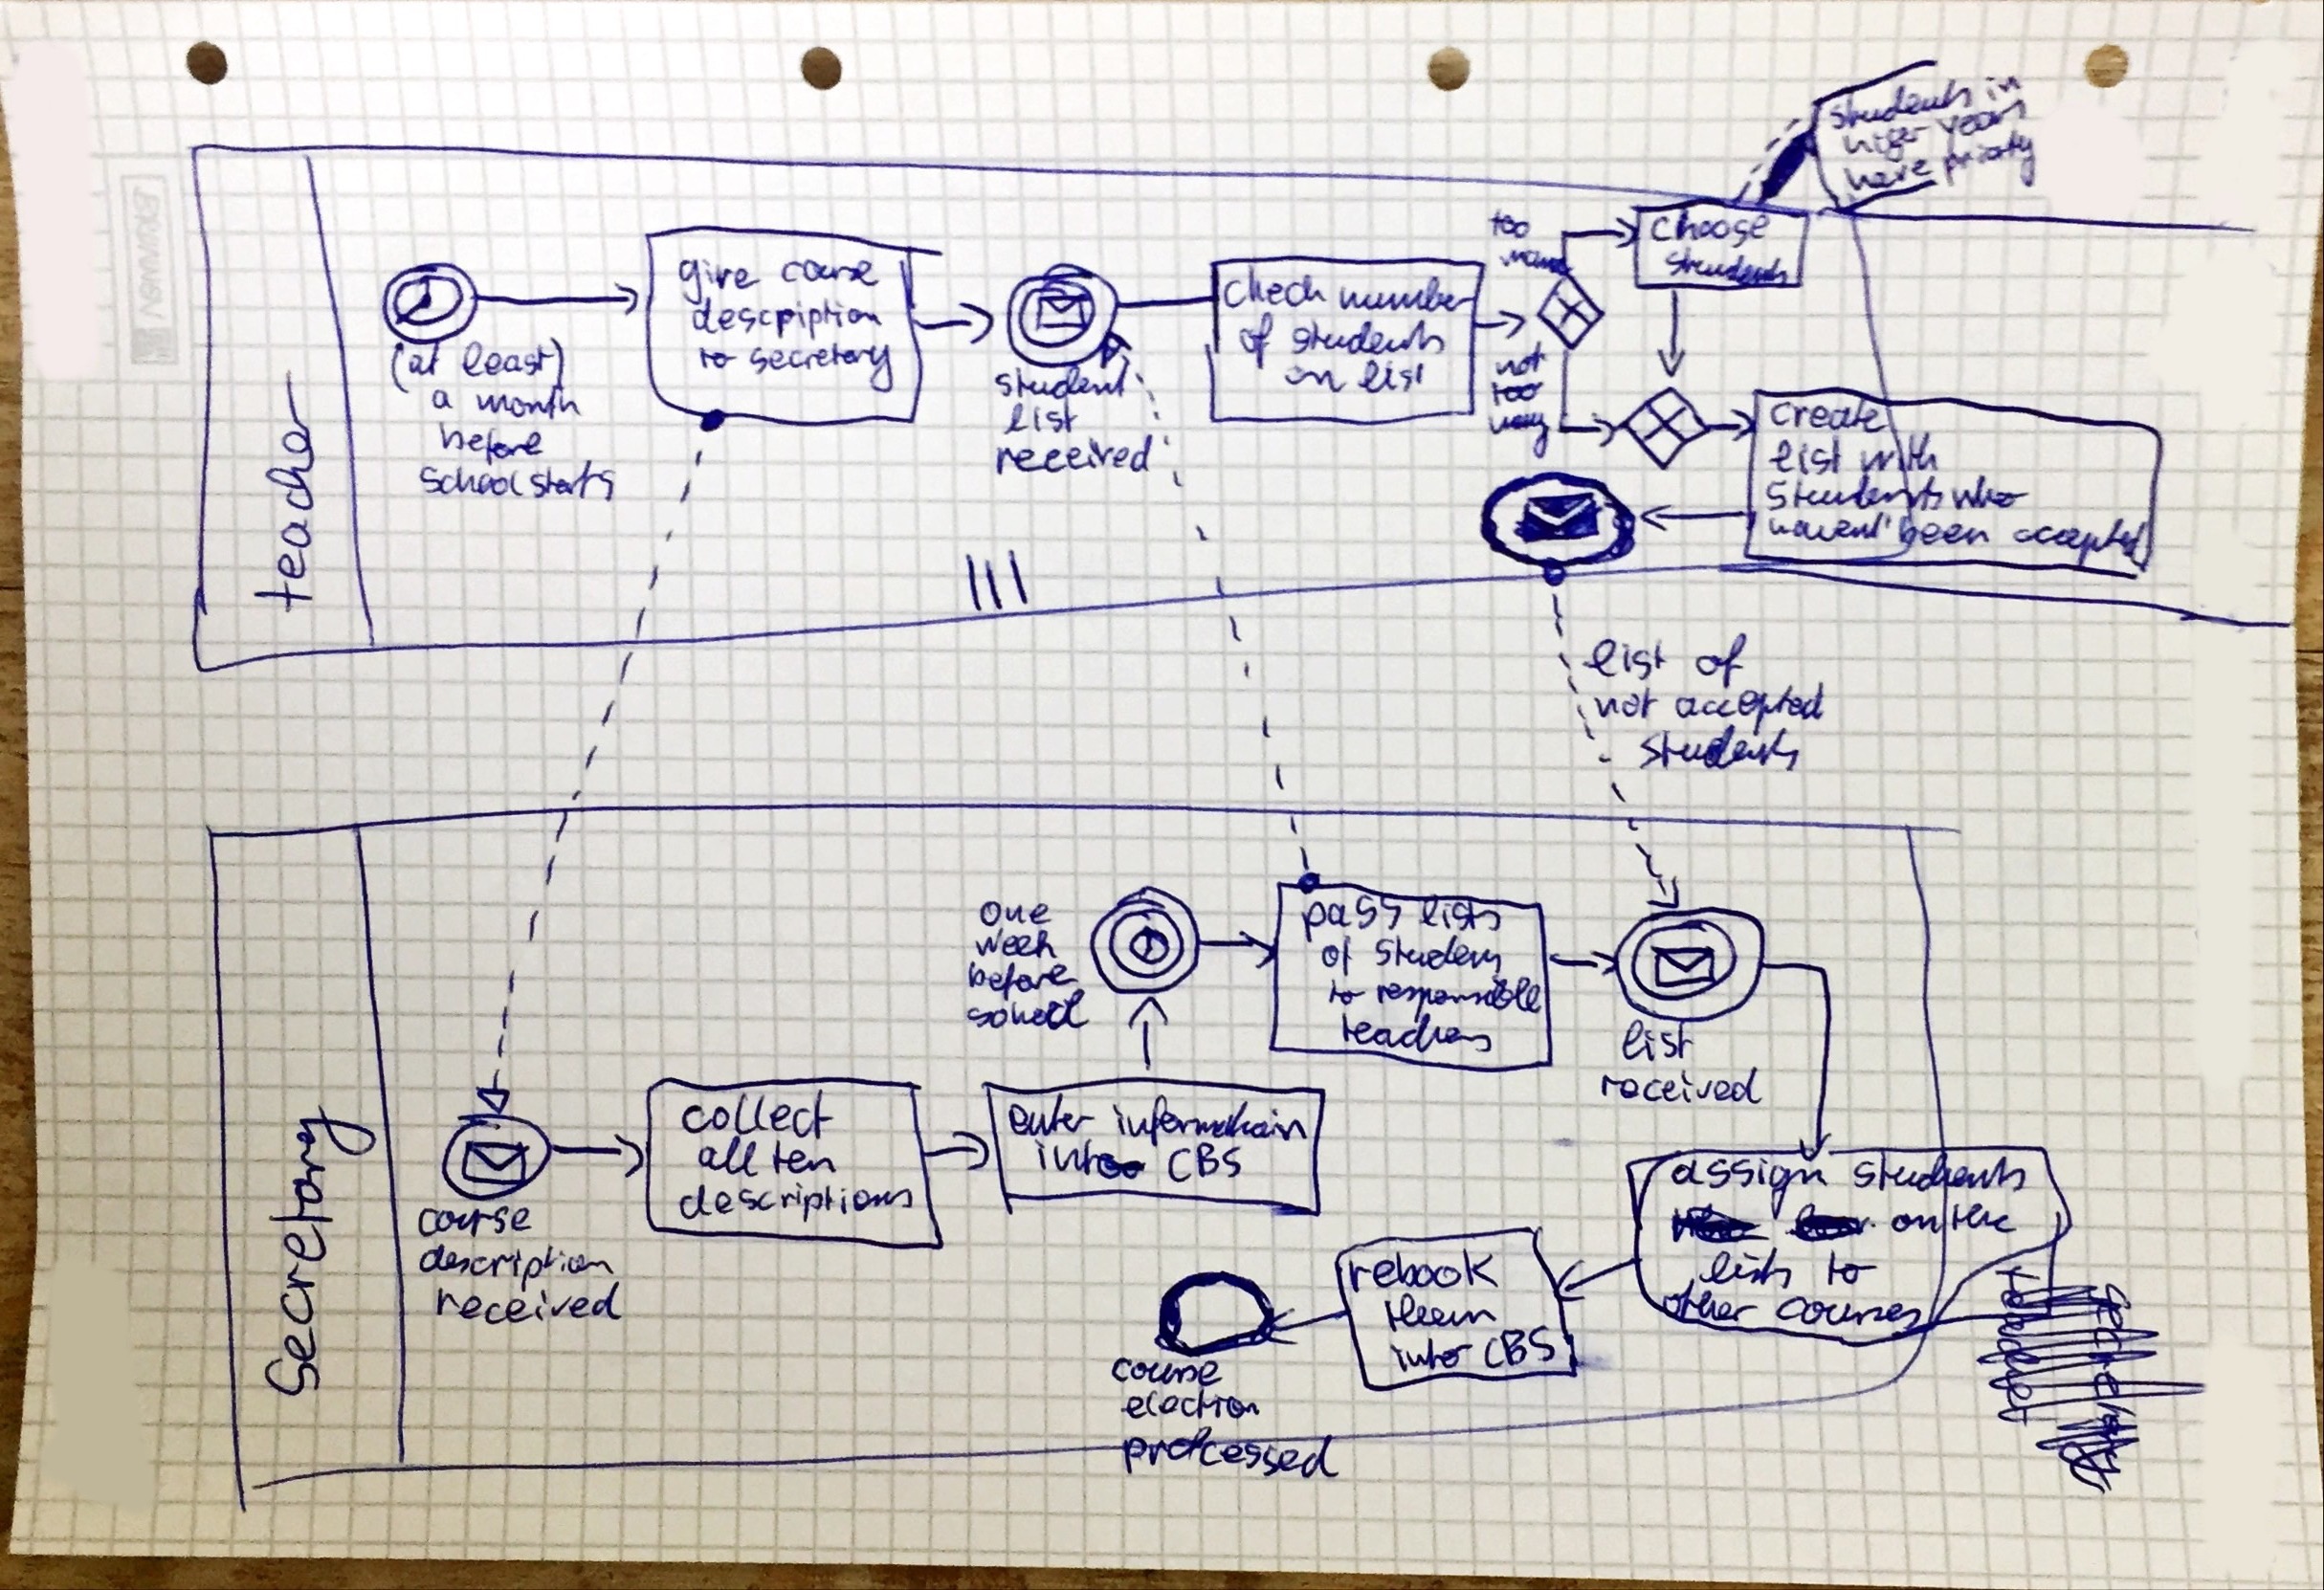 BRUNNEN
students in
higer years
have priority
teacher
(at least)
a month
before
school starts
give course
descpiption
to secretary
student
list
received
check number
of students
on list
too
many
not
too
many
choose
students
create
list with
students who
havent' been accepted
list of
not accepted
students
Secretary
course
description
received
collect
all ten
descriptions
enter information
into CBS
one
week
before
school
pass lists
of students
to responsible
teachers
list
received
assign students
on the
lists to
other courses
rebook
them
into CBS
course
election
processed